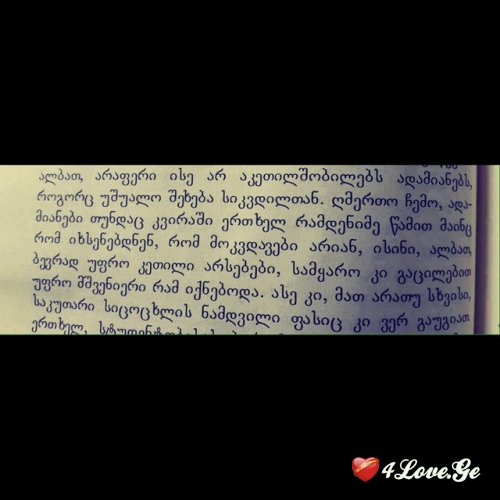 ალბათ, არაფერი ისე არ აკეთილშობილებს ადამიანებს,
როგორც უშუალო შეხება სიკვდილთან. ღმერთო ჩემო, ადა-
მიანები თუნდაც კვირაში ერთხელ რამდენიმე წამით მაინც
რომ იხსენებდნენ, რომ მოკვდავები არიან, ისინი, ალბათ,
ბევრად უფრო კეთილი არსებები, სამყარო კი გაცილებით
უფრო მშვენიერი რამ იქნებოდა. ასე კი, მათ არათუ სხვისი,
საკუთარი სიცოცხლის ნამდვილი ფასიც კი ვერ გაუგიათ
ერთხელ,
4Love.Ge